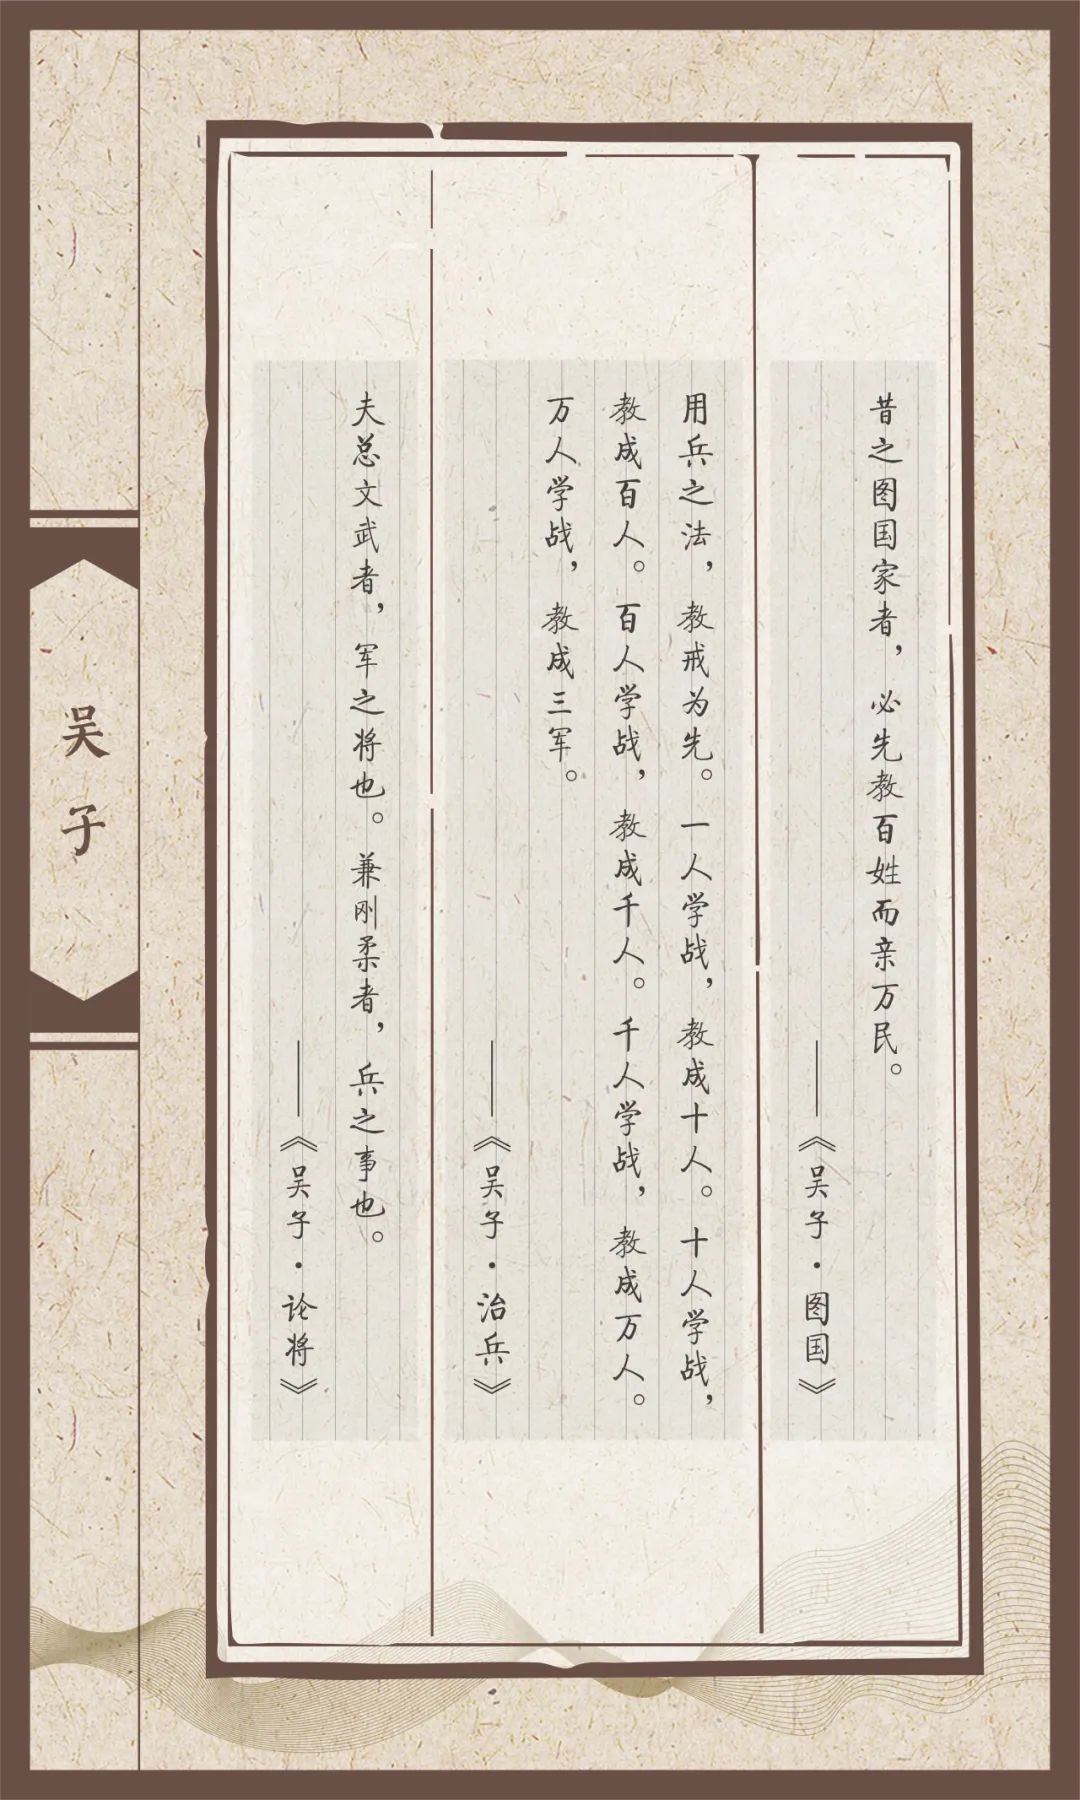 昔之图国家者，必先教百姓而亲万民。
——《吴子·图国》
用兵之法，教戒为先。一人学战，教成十人。十人学战，
教成百人。百人学战，教成千人。千人学战，教成万人。
万人学战，教成三军。
——《吴子·治兵》
夫总文武者，军之将也。兼刚柔者，兵之事也。
——《吴子·论将》
吴子